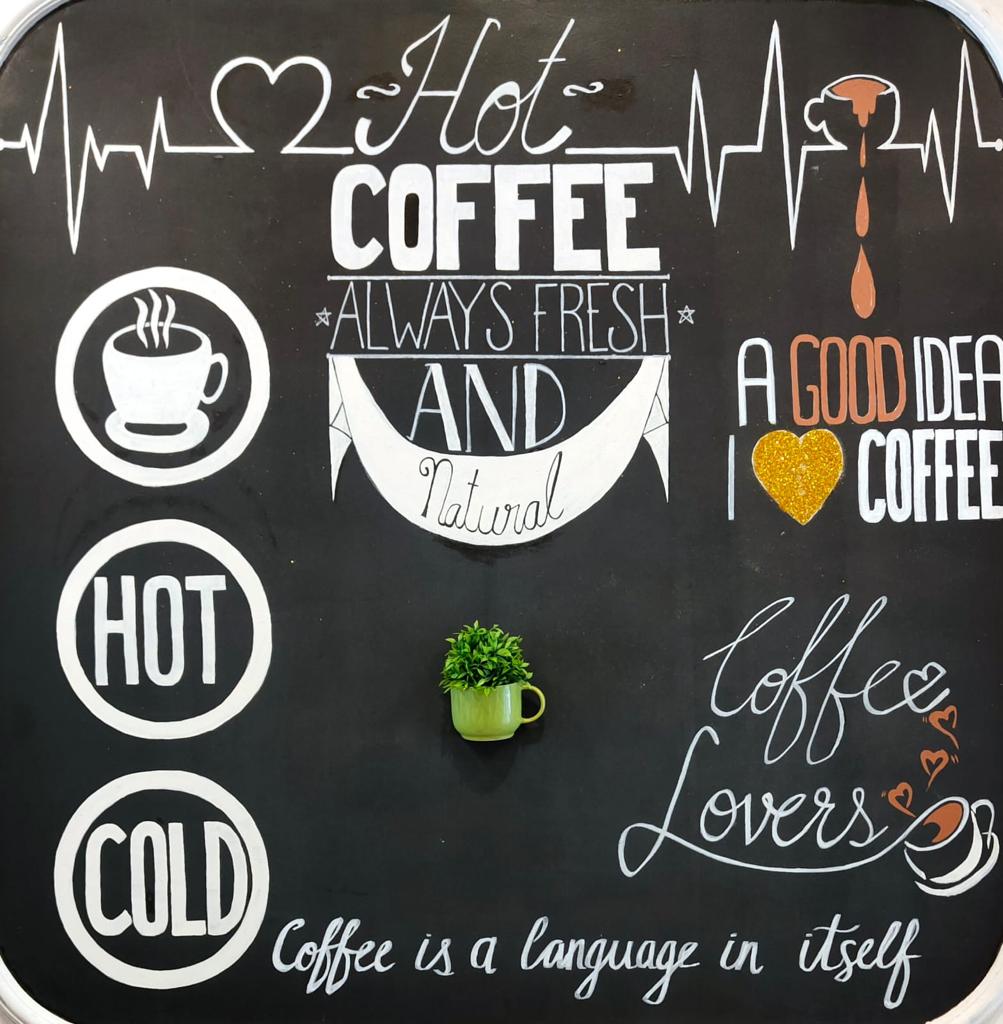 Hot
COFFEE
ALWAYS FRESH
AND
Natural
A GOOD IDEA
I COFFEE
HOT
Coffee
Lovers
COLD
Coffee is a language in itself